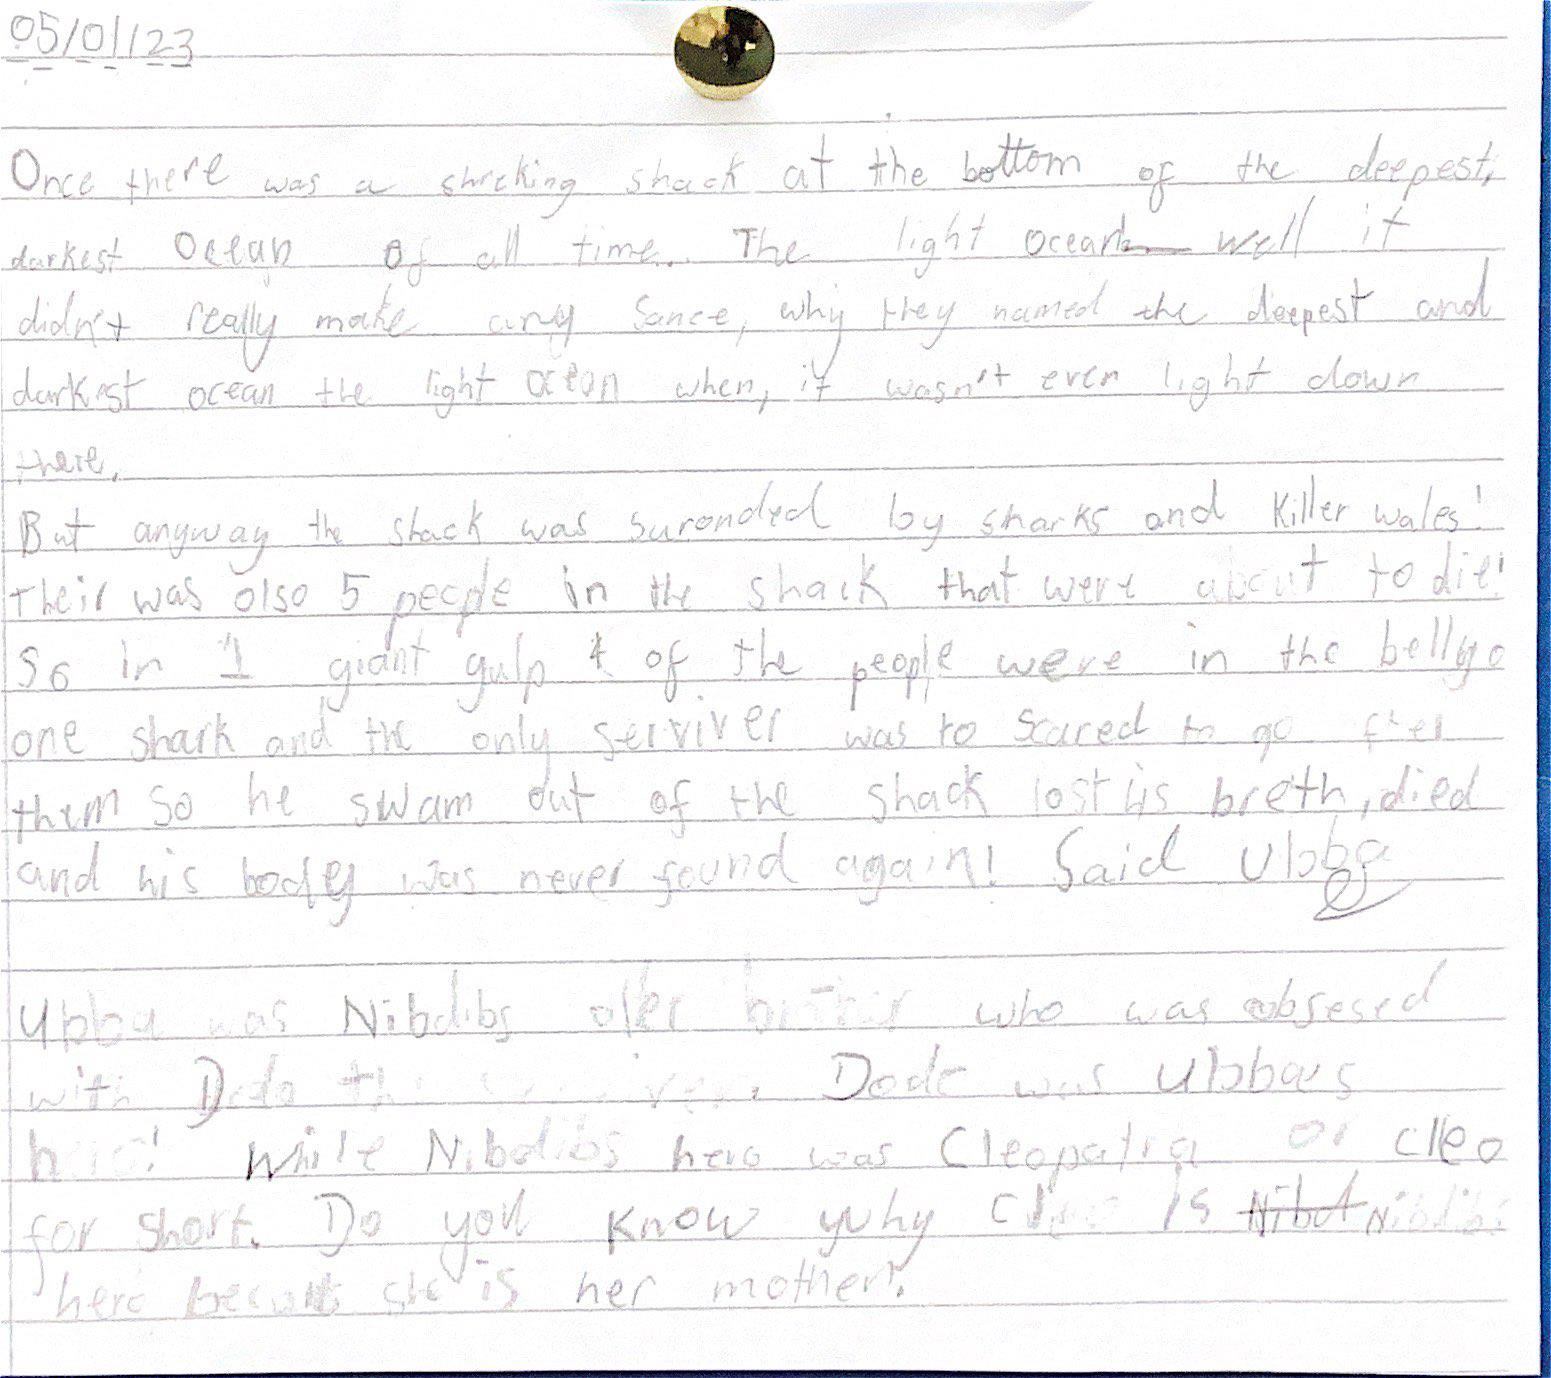 05/01/23
Once there was a shrcking shack at the bottom of the deepest,
darkest Ocean Of all time. The light ocean well it
didn't really make any Sance, why they named the deepest and
darkest ocean the light ocean when, it wasn't even light down
there.
But anyway the shack was suronded by sharks and Killer wales!
Their was also 5 people in the shack that were about to die!
So in 1 giant gulp 4 of the people were in the belly o
one shark and the only serviver was to scared to go
them so he swam out of the shack lost his breth, died
and his body was never found again! Said Ubba
Ubba was Nibdibs older brother who was obsesed
with Dodo Dodo was Ubbas
hero! While Nibdibs hero was Cleopatra or Cleo
for short. Do you know why Cleo is Nibdibs
hero becaus she is her mother!